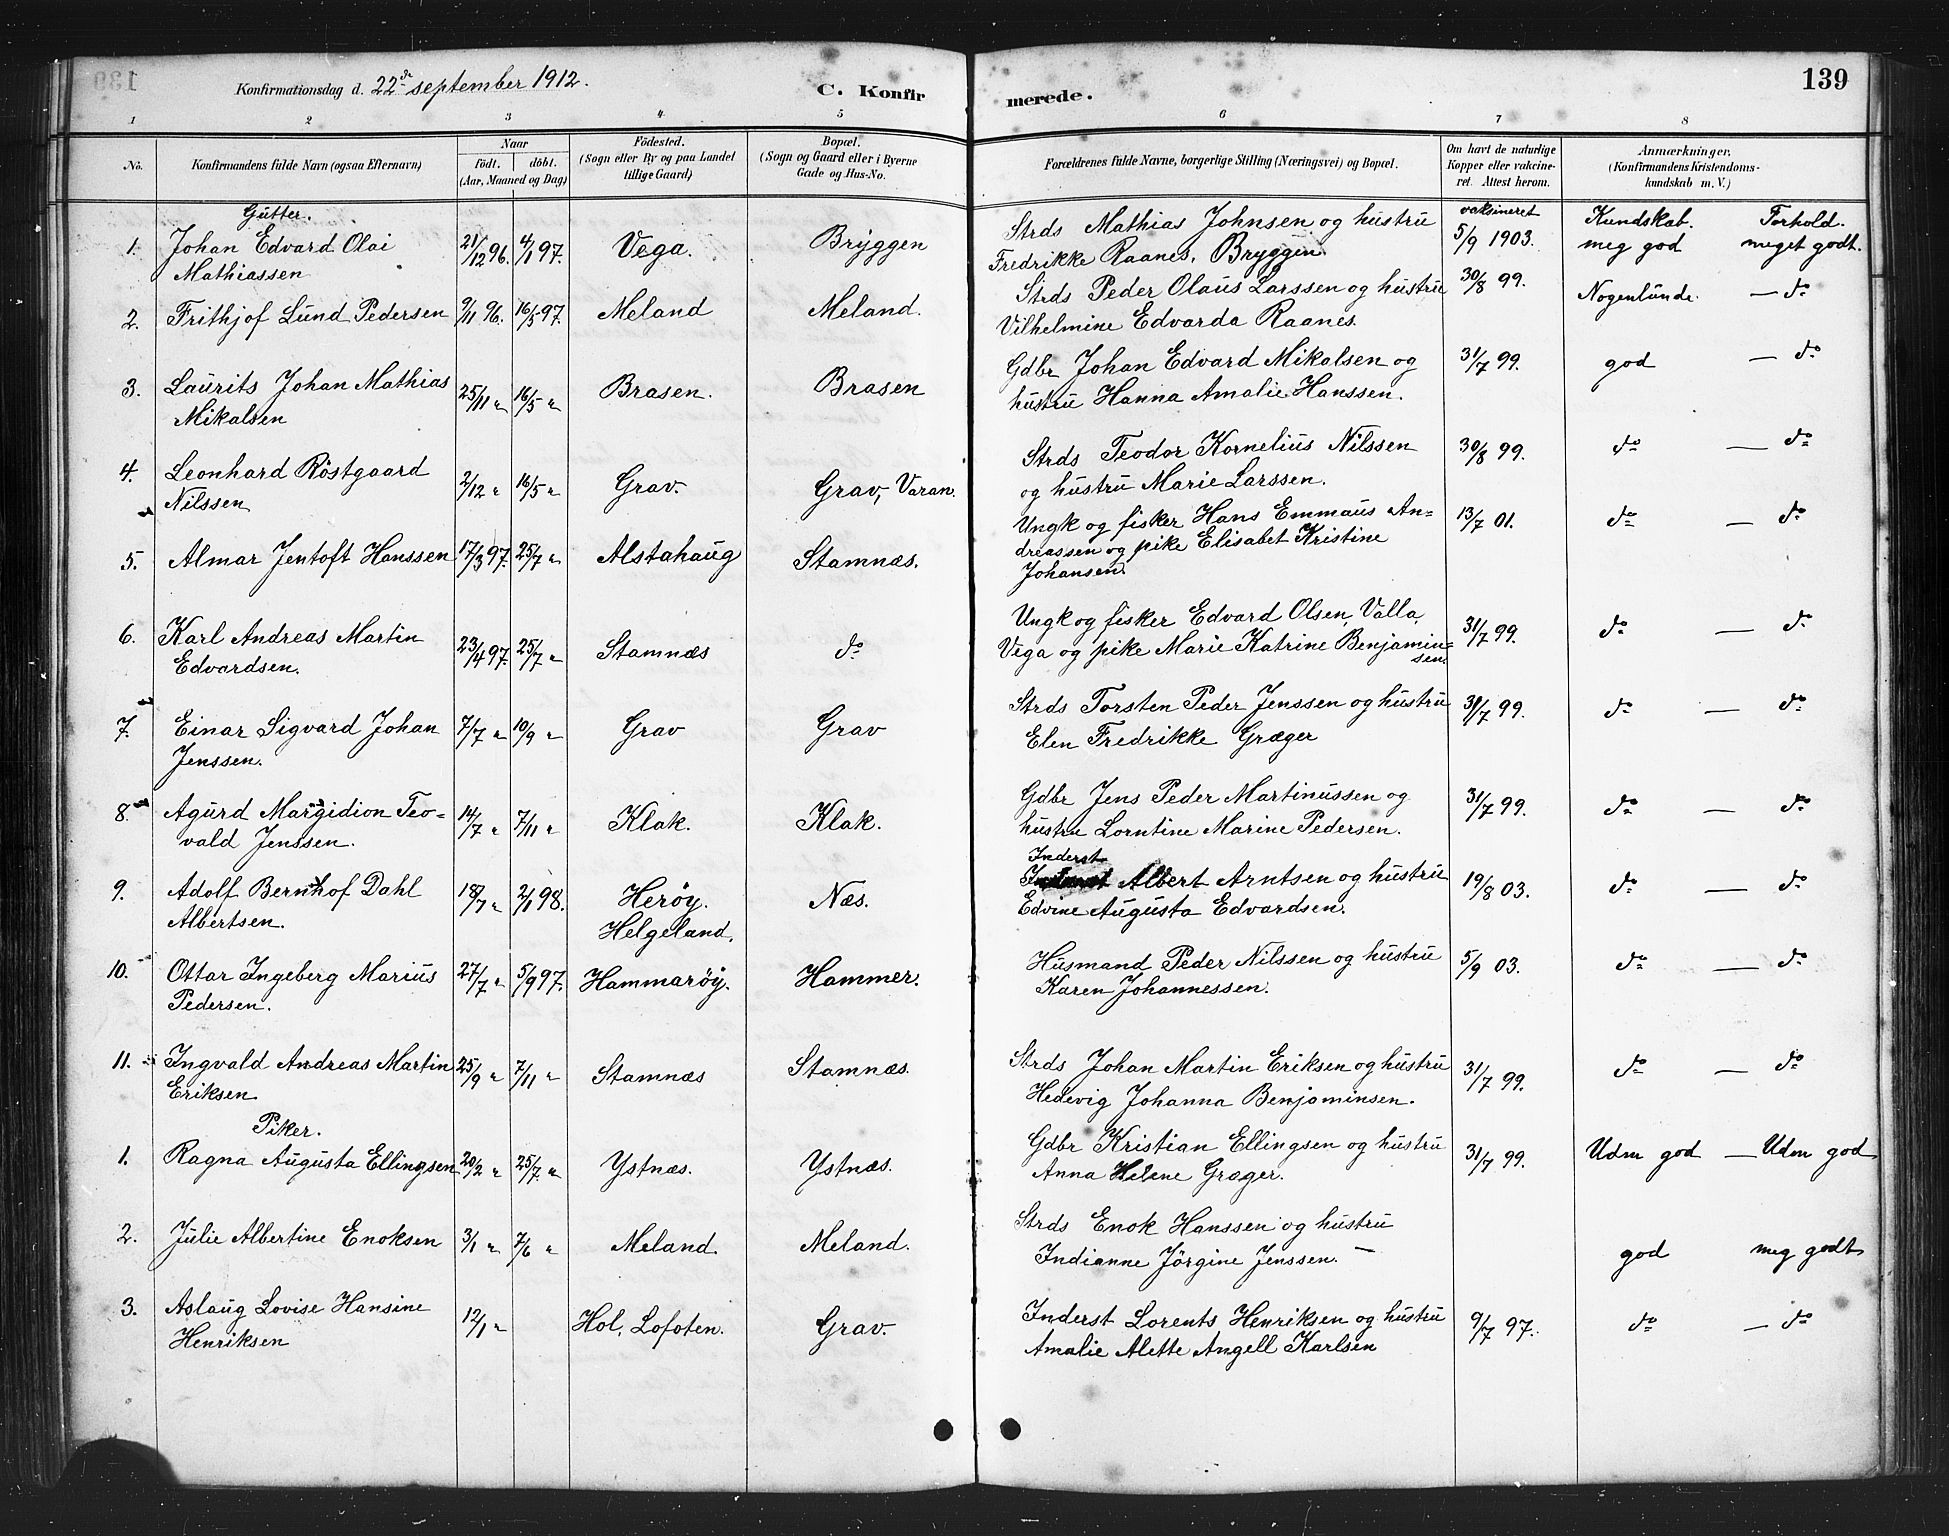 Konfirmationsdag d. 22de september 1912.
C. Konfirmerede.
139
1 2 3 4 5 6 7 8
No.
Konfirmandens fulde Navn (ogsaa Efternavn)
Naar
födt. döbt.
(Aar, Maaned og Dag)
Födested.
(Sogn eller By og paa Landet
tillige Gaard)
Bopæl.
(Sogn og Gaard eller i Byerne
Gade og Hus-No.
Forældrenes fulde Navne, borgerlige Stilling (Næringsvei) og Bopæl.
Om havt de naturlige
Kopper eller vakcine-
ret. Attest herom.
Anmærkninger,
(Konfirmandens Kristendoms-
kundskab m. V.)
Gutter.
vaksineret Kundskab. Forhold.
1. Johan Edvard Olai 21/12 96. 4/1 97. Vega. Bryggen Strds Mathias Johnsen og hustru 5/9 1903. meg god meget godt.
Mathiassen Fredrikke Raanes, Bryggen.
2. Frithjof Lund Pedersen 9/11 96. 16/5 97. Meland Meland. Strds Peder Olaus Larssen og hustru 30/8 99. Nogenlunde. — do
Vilhelmine Edvarda Raanes.
3. Laurits Johan Mathias 25/11 " 16/5 " Brasen. Brasen Gdbr Johan Edvard Mikalsen og 31/7 99. god — do
Mikalsen hustru Hanna Amalie Hanssen.
4. Leonhard Röstgaard 2/12 " 16/5 " Grav. Grav, Varan. Strds Teodor Kornelius Nilssen 30/8 99. do — do
Nilssen og hustru Marie Larssen.
5. Almar Jentoft Hanssen 17/3 97. 25/7 " Alstahaug Stamnæs. Ungk og fisker Hans Emmaus An= 13/7 01. do — do
dreassen og pike Elisabet Kristine
Johansen.
6. Karl Andreas Martin 23/4 97. 25/7 " Stamnæs do Ungk og fisker Edvard Olsen, Valla, 31/7 99. do — do
Edvardsen. Vega og pike Marie Katrine Benjamin=
sen.
7. Einar Sigvard Johan 7/7 " 10/9 " Grav Grav Strds Torsten Peder Jenssen og hustru 31/7 99. do — do
Jenssen. Elen Fredrikke Græger
8. Agurd Margidion Teo= 14/7 " 7/11 " Klak. Klak. Gdbr Jens Peder Martinussen og 31/7 99. do — do
vald Jenssen. hustru Lorntine Marine Pedersen.
Inderst
9. Adolf Bernhof Dahl 18/7 " 2/1 98. Herøy. Næs. Albert Arntsen og hustru 19/8 03. do — do
Albertsen. Helgeland. Edvine Augusta Edvardsen.
10. Ottar Ingeberg Marius 27/7 " 5/9 97. Hammaröy. Hammer. Husmand Peder Nilssen og hustru 5/9 03. do — do
Pedersen. Karen Johannessen.
11. Ingvald Andreas Martin 25/9 " 7/11 " Stamnæs Stamnæs. Strds Johan Martin Eriksen og hustru 31/7 99. do — do
Eriksen Hedevig Johanna Benjaminsen.
Piker.
1. Ragna Augusta Ellingsen 20/2 " 25/7. " Ystnæs. Ystnæs. Gdbr Kristian Ellingsen og hustru 31/7 99. Udm god — Udm god
Anna Helene Græger.
2. Julie Albertine Enoksen 3/1 " 7/6 " Meland. Meland. Strds Enok Hanssen og hustru god meg godt
Indianne Jörgine Jenssen. —
3. Aslaug Lovise Hansine 12/1 " Hol, Lofoten. Grav. Inderst Lorents Henriksen og hustru 9/7 97. do — do
Henriksen Amalie Alette Angell Karlsen